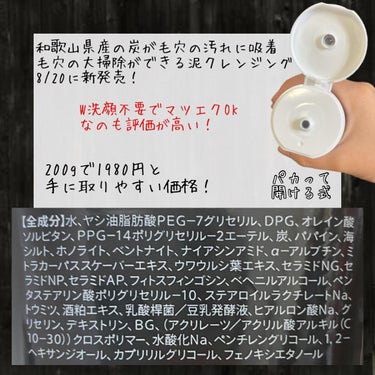 和歌山県産の炭が毛穴の汚れに吸着
毛穴の大掃除ができる泥クレンジング
8/20に新発売！
W洗顔不要でマツエクOk
なのも評価が高い！
200gで1980円と
手に取りやすい価格！
パカって
開ける式
【全成分】水、ヤシ油脂肪酸PEG-7グリセリル、DPG、オレイン酸
ソルビタン、PPG-14ポリグリセリル-2エーテル、炭、パパイン、海
シルト、ホノライト、ベントナイト、ナイアシンアミド、α-アルブチン、ミ
トラカーパススケーバーエキス、ウワウルシ葉エキス、セラミドNG、セ
ラミドNP、セラミドAP、フィトスフィンゴシン、ベヘニルアルコール、ペン
タステアリン酸ポリグリセリル-10、ステアロイルラクチレートNa、
トウミツ、酒粕エキス、乳酸桿菌／豆乳発酵液、ヒアルロン酸Na、グ
リセリン、デキストリン、BG、(アクリレーツ／アクリル酸アルキル(C
10-30))クロスポリマー、水酸化Na、ペンチレングリコール、1,2-
ヘキサンジオール、カプリリルグリコール、フェノキシエタノール